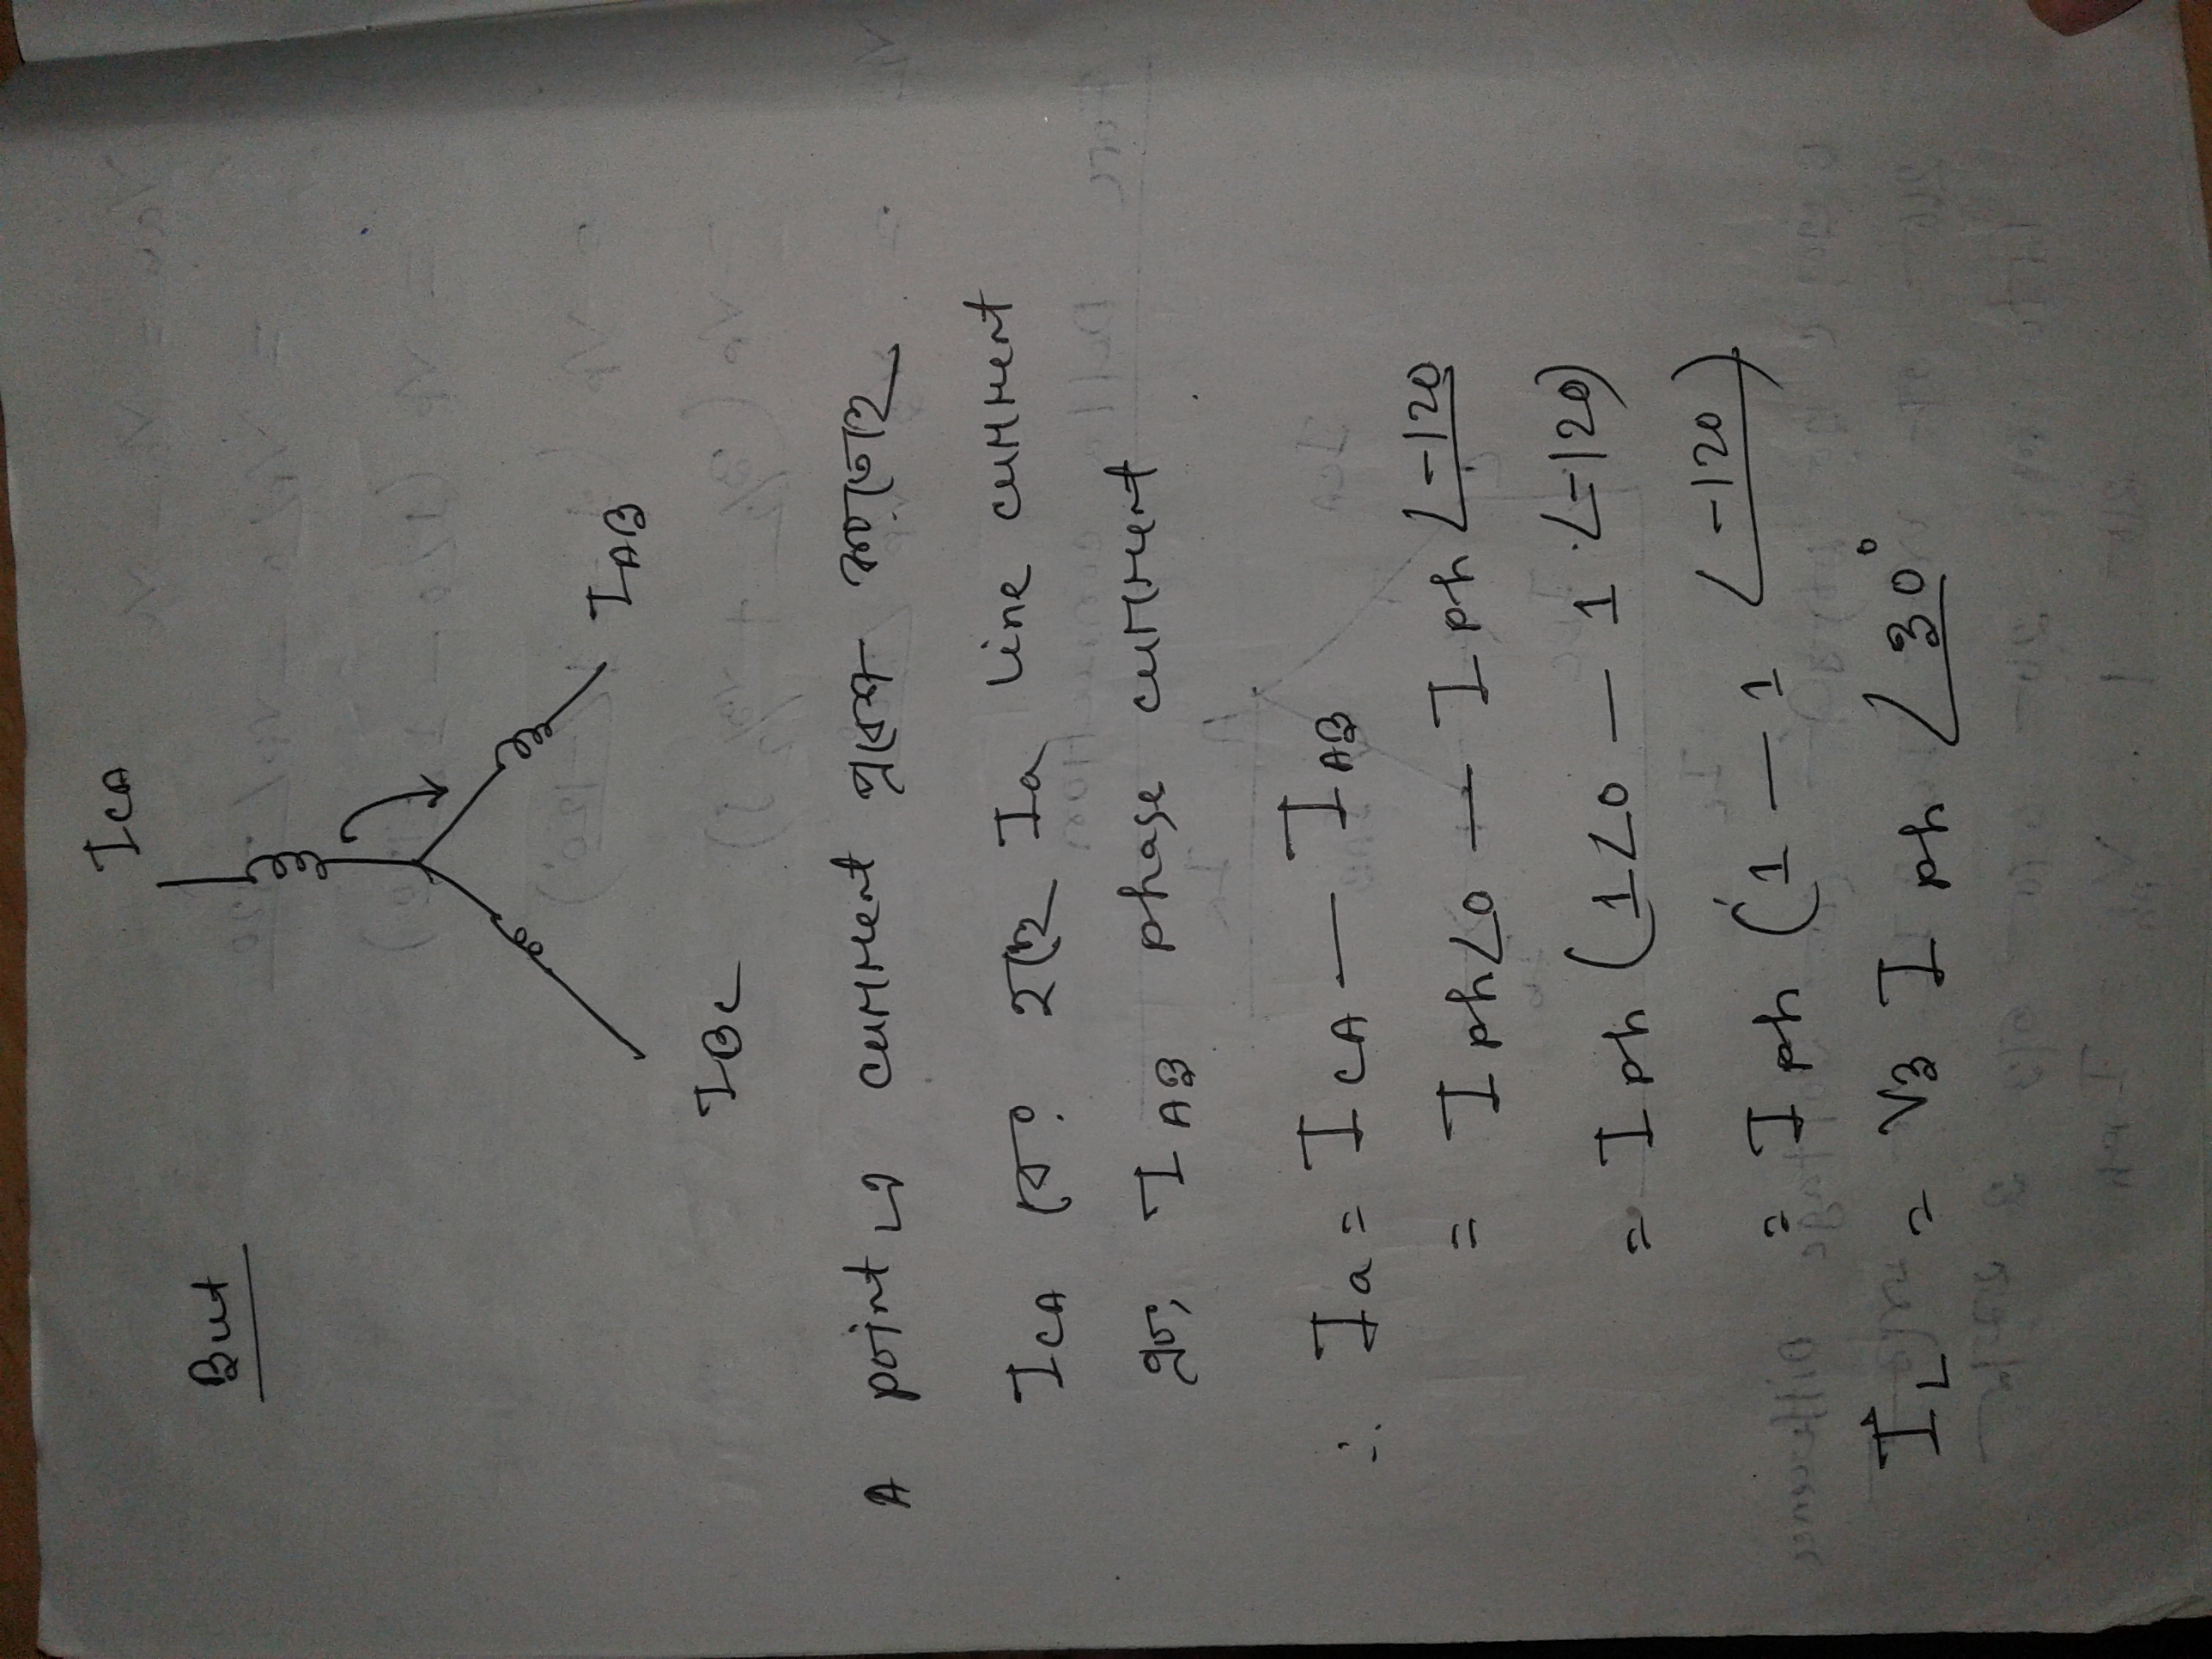 I CA
But
I AB
I BC
A point এ current প্রবেশ করতেছে
I CA বের হচ্ছে Ia line current
এবং I AB phase current
∴ Ia = I CA — I AB
= I ph∠0 — I ph ∠-120
= I ph (1∠0 — 1 ∠-120)
= I ph (1 — 1 ∠-120)
I L = √3 I ph ∠30°